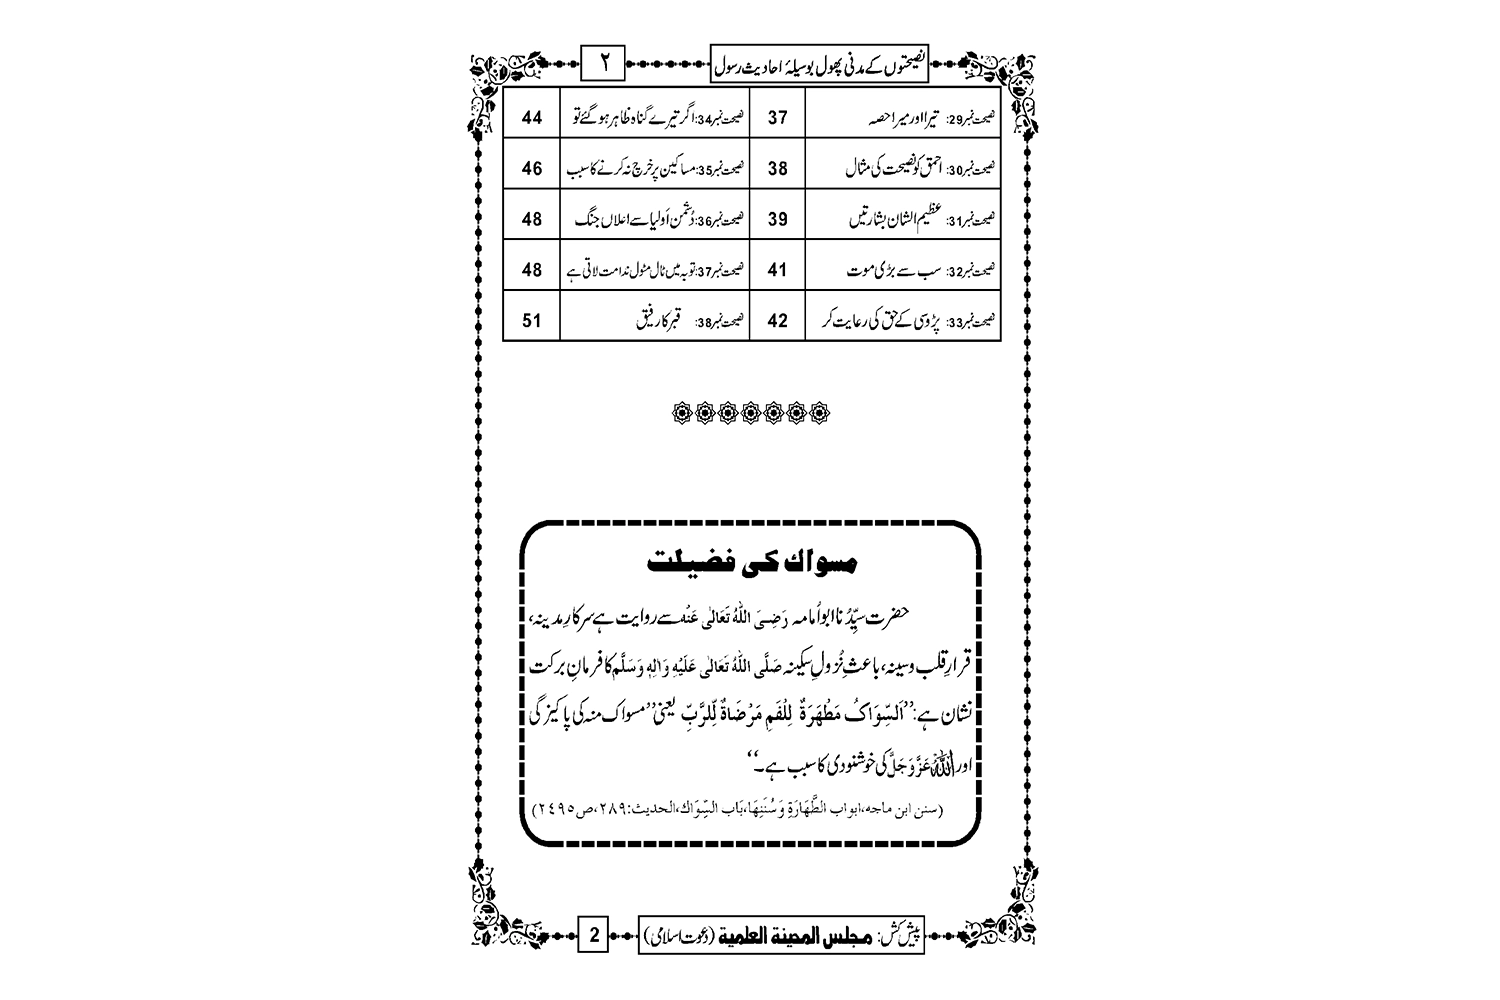 نصیحتوں کے مدنی پھول بوسیلۂ احادیث رسول ٢
نصیحت نمبر29: تیرا اور میرا حصہ 37 نصیحت نمبر34: اگر تیرے گناہ ظاہر ہو گئے تو 44
نصیحت نمبر30: احمق کو نصیحت کی مثال 38 نصیحت نمبر35: مساکین پر خرچ نہ کرنے کا سبب 46
نصیحت نمبر31: عظیم الشان بشارتیں 39 نصیحت نمبر36: دُشمن اَولیا سے اعلان جنگ 48
نصیحت نمبر32: سب سے بڑی موت 41 نصیحت نمبر37: توبہ میں ٹال مٹول ندامت لاتی ہے 48
نصیحت نمبر33: پڑوسی کے حق کی رعایت کر 42 نصیحت نمبر38: قبر کا رفیق 51
مسواک کی فضیلت
حضرت سیِّدُنا ابو اُمامہ رَضِیَ اللّٰہُ تَعَالٰی عَنْہ سے روایت ہے سرکارِ مدینہ،
قرارِ قلب وسینہ، باعثِ نُزولِ سکینہ صَلَّی اللّٰہُ تَعَالٰی عَلَیْہِ وَاٰلِہٖ وَسَلَّم کا فرمانِ برکت
نشان ہے: ’’اَلسِّوَاکُ مَطْھَرَۃٌ لِّلْفَمِ مَرْضَاۃٌ لِّلرَّبِّ یعنی’’ مسواک منہ کی پاکیزگی
اور اللّٰہ عَزَّوَجَلَّ کی خوشنودی کا سبب ہے۔‘‘
(سنن ابن ماجہ،ابواب الطَّھَارَۃِ وَسُنَنِھَا،بَاب السِّوَاک،الحدیث:٢٨٩،ص٢٤٩٥)
پیش کش: مجلس المدینة العلمیة (دعوت اسلامی) 2